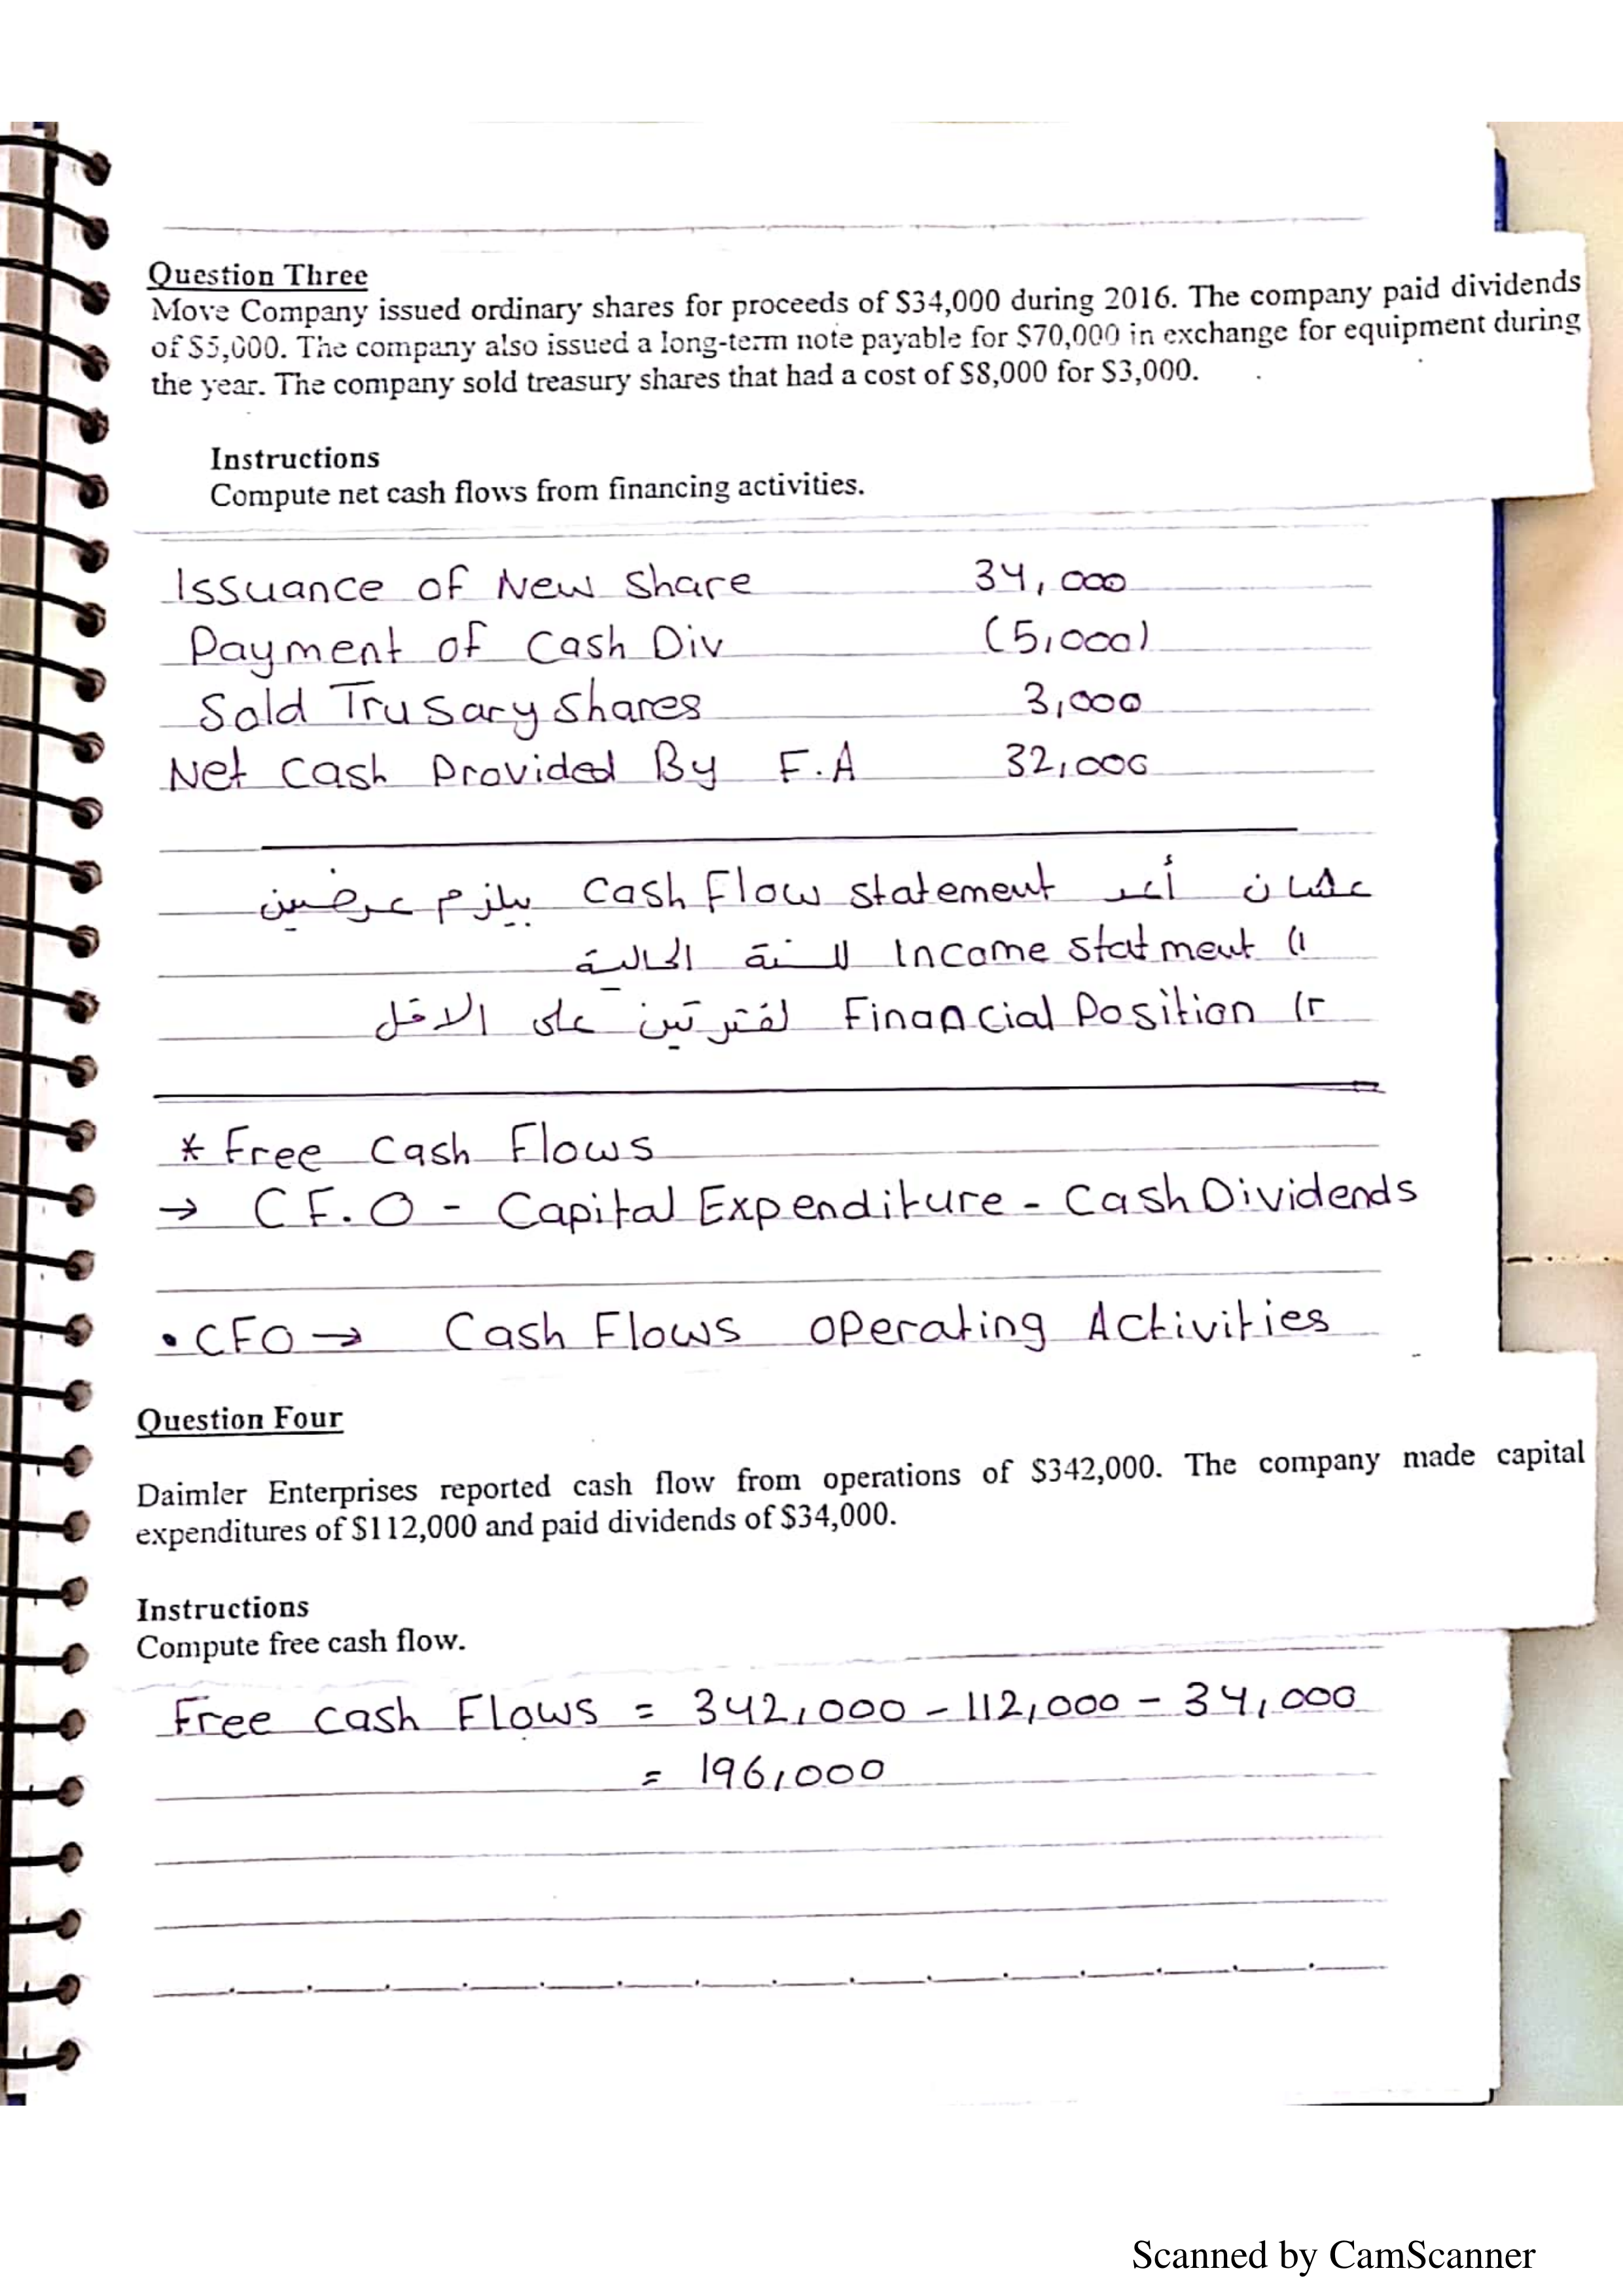 Question Three
Move Company issued ordinary shares for proceeds of $34,000 during 2016. The company paid dividends
of $5,000. The company also issued a long-term note payable for $70,000 in exchange for equipment during
the year. The company sold treasury shares that had a cost of $8,000 for $3,000.
Instructions
Compute net cash flows from financing activities.
Issuance of New Share 34,000
Payment of Cash Div (5,000)
Sold Trusary shares 3,000
Net Cash Provided By F.A 32,000
عشان أعد Cash Flow statement بيلزم عرضين
١) Income statment للسنة الحالية
٢) Financial Position لفترتين على الاقل
* Free Cash Flows
→ C.F.O - Capital Expenditure - Cash Dividends
• CFO → Cash Flows Operating Activities
Question Four
Daimler Enterprises reported cash flow from operations of $342,000. The company made capital
expenditures of $112,000 and paid dividends of $34,000.
Instructions
Compute free cash flow.
Free cash Flows = 342,000 - 112,000 - 34,000
= 196,000
Scanned by CamScanner